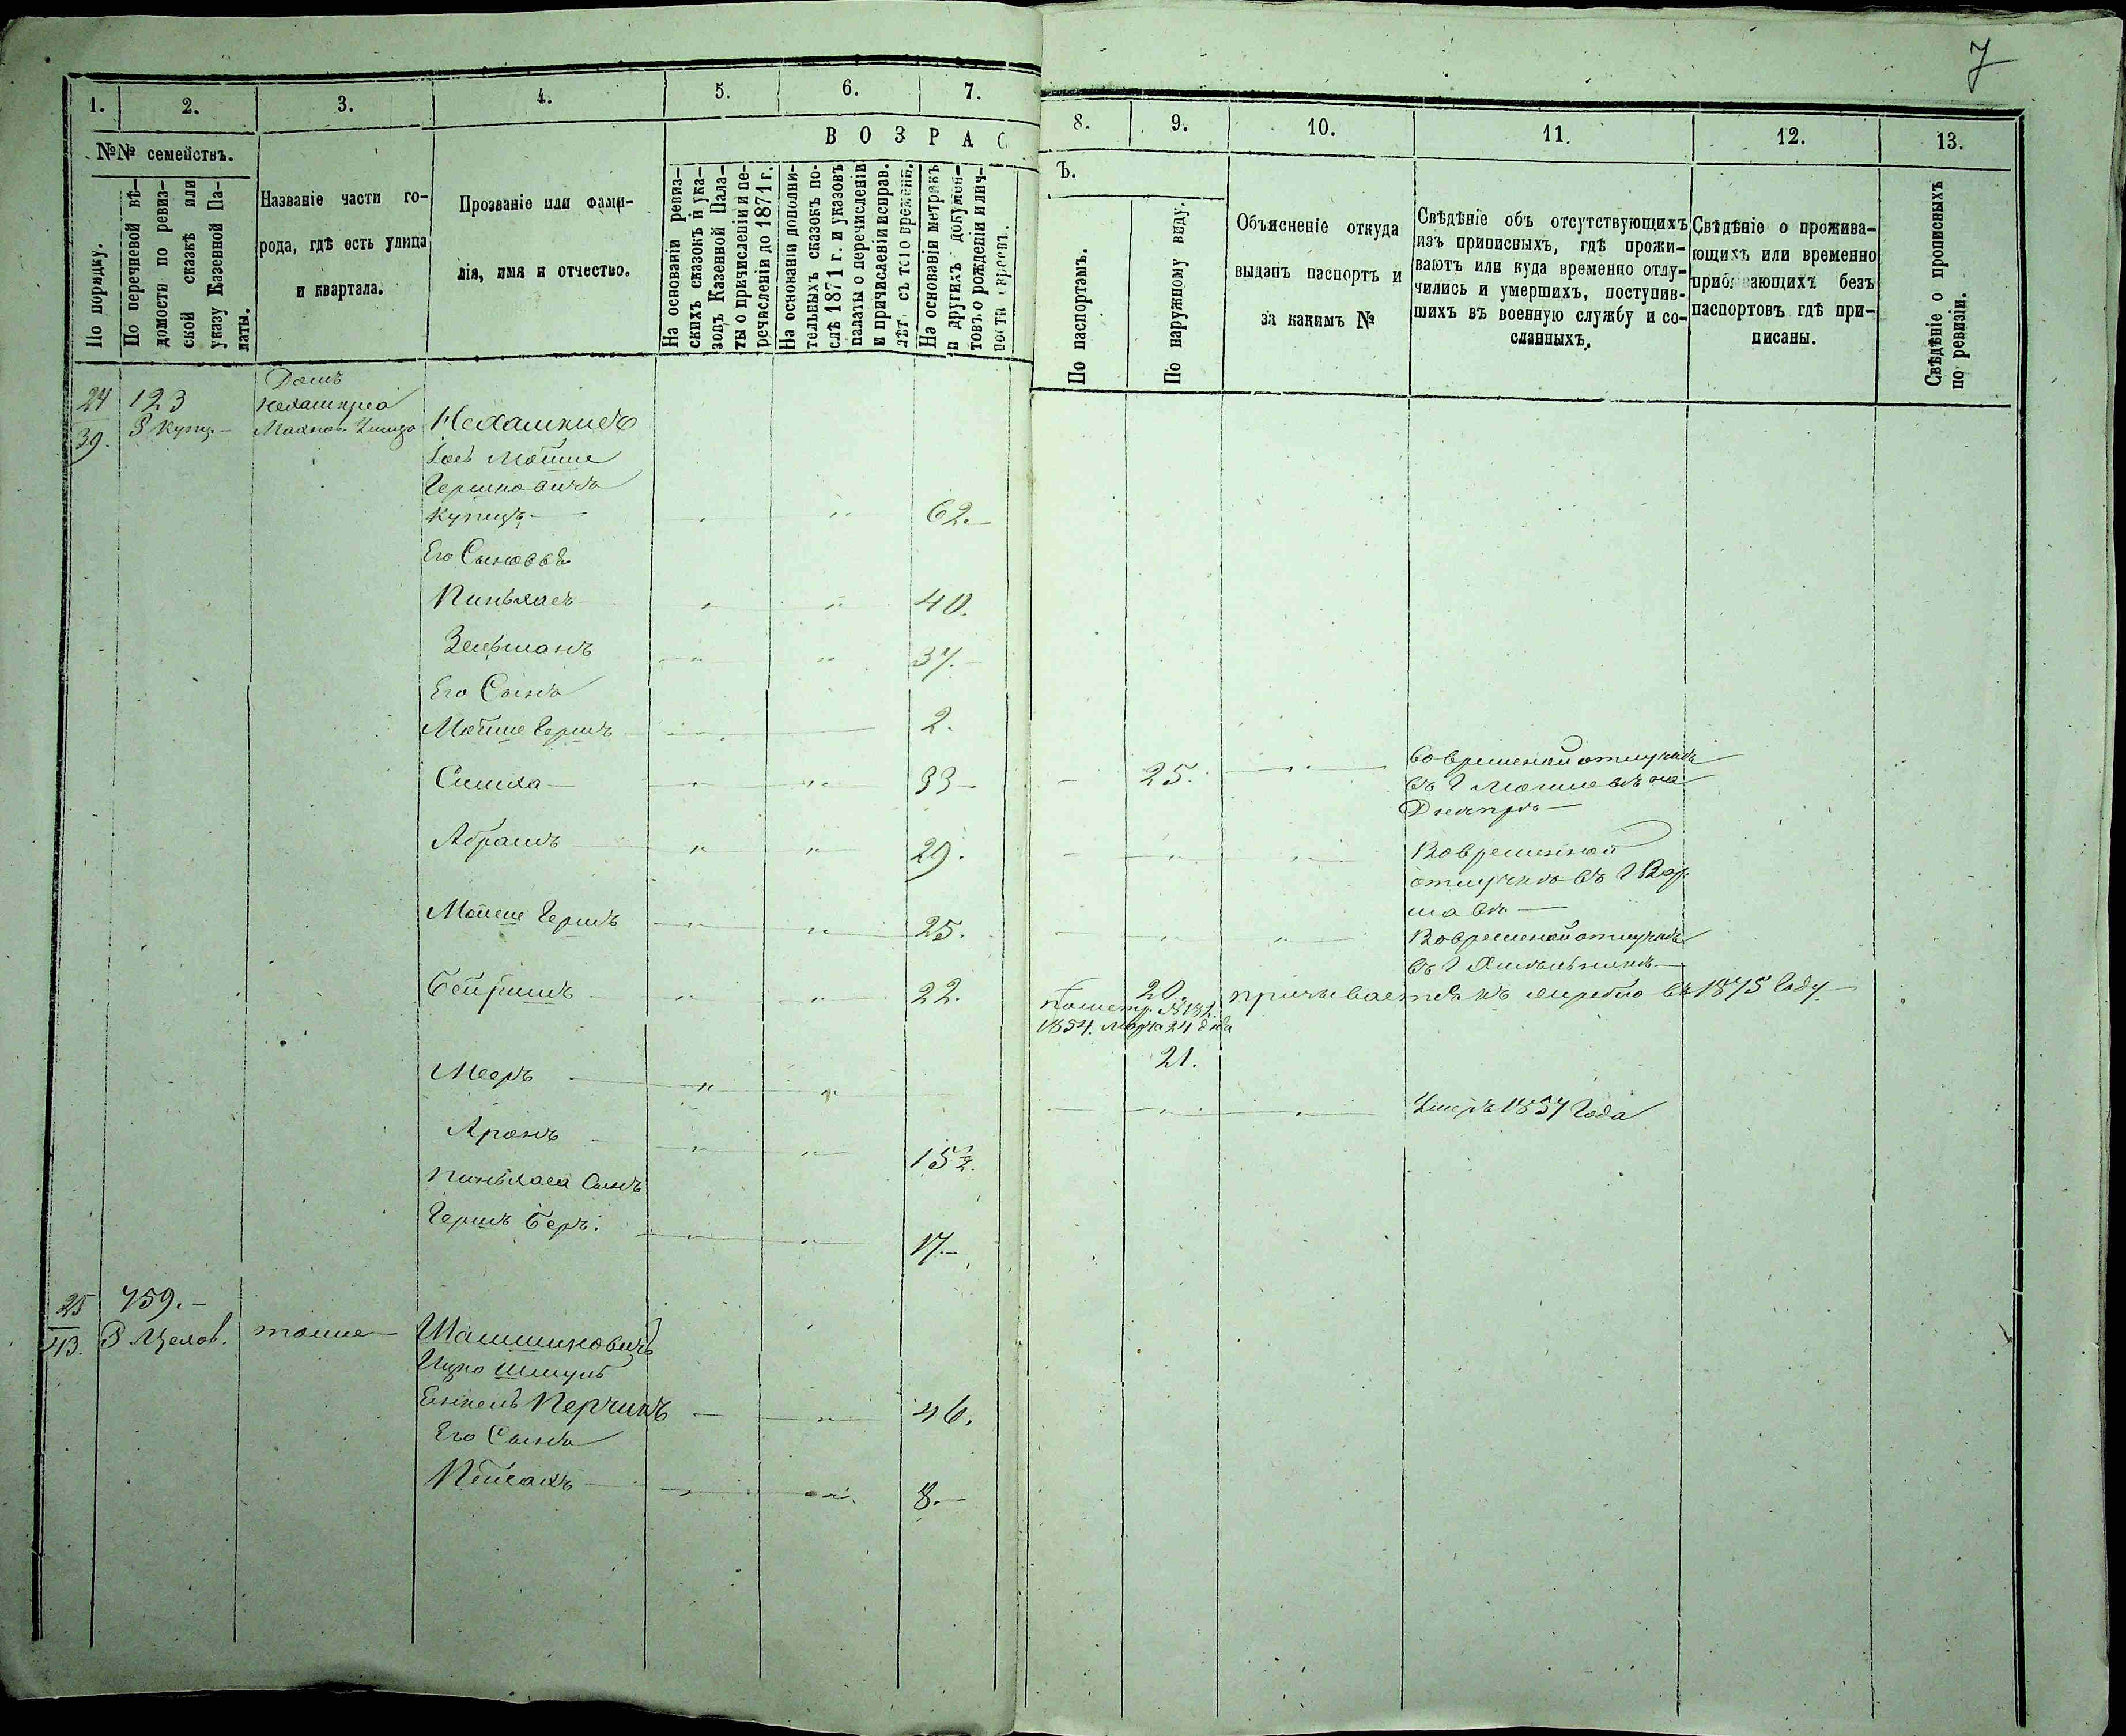 7
1. 2. 3. 4. 5. 6. 7. 8. 9. 10. 11. 12. 13.
№№ семействъ.
По порядку.
По перечневой вѣ-
домости по ревиз-
ской сказкѣ или
указу Казенной Па-
латы.
Названіе части го-
рода, гдѣ есть улица
и квартала.
Прозваніе или фами-
лія, имя и отчество.
ВОЗРАС
Ъ.
На основаніи ревиз-
скихъ сказокъ и ука-
зовъ Казенной Пала-
ты о причисленіи и пе-
речисленіи до 1871 г.
На основаніи дополни-
тельныхъ сказокъ по-
слѣ 1871 г. и указовъ
палаты о перечисленіи
и причисленіи исправ.
лѣт съ того времени.
На основаніи метрикъ
и другихъ докумен-
товъ о рожденіи и лич-
ности евреевъ.
По паспортамъ.
По наружному виду.
Объясненіе откуда
выданъ паспортъ и
за какимъ №
Свѣдѣніе объ отсутствующихъ
изъ приписныхъ, гдѣ прожи-
ваютъ или куда временно отлу-
чились и умершихъ, поступив-
шихъ въ военную службу и со-
сланныхъ.
Свѣдѣніе о прожива-
ющихъ или временно
прибывающихъ безъ
паспортовъ гдѣ при-
писаны.
Свѣдѣніе о прописныхъ
по ревизіи.
24 123 Домъ
39. Купц. Нехамкиса
Нехамкисъ
Мойше
Гершковичъ
Купецъ 62.
Его Сыновья
Пиньхасъ 40.
Зельманъ 37.
Его Сынъ
Мойше Гершъ 2.
Симха 33 25. Во временной отлучкѣ
въ Г Могилевѣ на
Днепрѣ
Абрамъ 29. Вовременной
отлучкѣ въ Г Вар
шавѣ
Мойше Гершъ 25. Вовременой отлучкѣ
въ Г Хмельникѣ
Бейришъ 22. 20. призывается къ жребію въ 1875 Году
по метр. № 132.
1854. Марта 24 дня
21.
Мееръ Умеръ 1857 Года
Аронъ 15½.
Пиньхаса Сынъ
Гершъ Беръ. 17.
25 759.
43. Цехов. тоже
Машинковичъ
Ицко Шмуль
Енкель Перчикъ 46.
Его Сынъ
Пейсахъ 8.